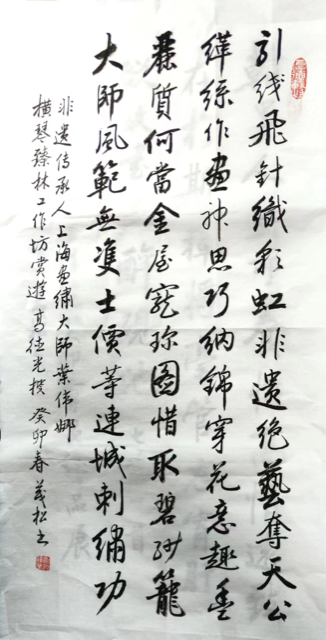 引线飛針織彩虹非遺绝藝奪天公
繹絲作画神思巧納錦穿花意趣
麗質何當金屋寵珎圖惜取碧紗籠
大師風範無雙士價等連城刺繡功
非遺传承人上海画繡大師葉伟娜
橫琴臻林工作坊賞遊高德光撰癸卯春義松书